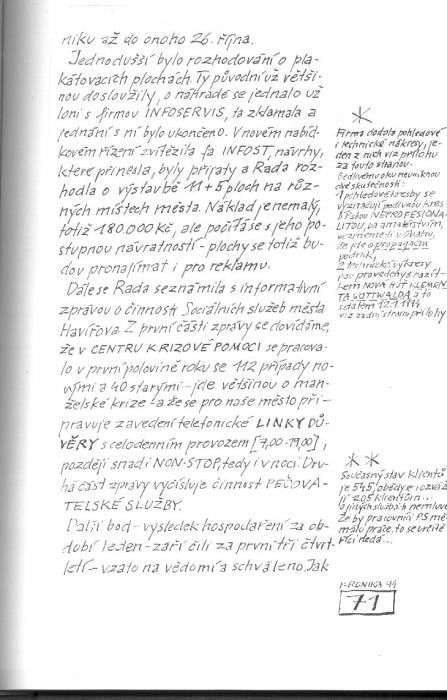 niku až do onoho 26. října.
Jednodušší bylo rozhodování o pla-
kátovacích plochách. Ty původní už větši-
nou dosloužily, o náhradě se jednalo už
loni s firmou INFOSERVIS, ta zklamala a
jednání s ní bylo ukončeno. V novém nabíd-
kovém řízení zvítězila fa INFOST, návrhy,
které přinesla, byly přijaty a Rada roz-
hodla o výstavbě 11+5 ploch na růz-
ných místech města. Náklad je nemalý,
totiž 180.000 kč, ale počítá se s jeho po-
stupnou návratností - plochy se totiž bu-
dou pronajímat i pro reklamu.
Dále se Rada seznámila s informativní
zprávou o činnosti Sociálních služeb města
Havířova. Z první části zprávy se dovídáme,
že v CENTRU KRIZOVÉ POMOCI se pracova-
lo v první polovině roku se 112 případy no-
vými a 40 starými - jde většinou o man-
želské krize - a že se pro naše město při-
pravuje zavedení telefonické LINKY DŮ-
VĚRY s celodenním provozem [7,00-19,00],
později snad i NON-STOP, tedy i v noci. Dru-
há část zprávy vyčísluje činnost PEČOVA-
TELSKÉ SLUŽBY.
Další bod - výsledek hospodaření za ob-
dobí leden - září čili za první tři čtvrt-
letí - vzato na vědomí a schváleno. Jak
*
Firma dodala pohledové
i technické nákresy, je-
den z nich viz příloha
za touto stranou.
Bedlivému oku neuniknou
dvě skutečnosti:
1 pohledové kresby se
vyznačují podivnou kres-
bířskou NEPROFESIONA-
LITOU, ba amatérstvím,
vezmeme-li v úvahu,
že jde o propagační
podnik,
2 technické výkresy
jsou provedeny s razít-
kem NOVÁ HUŤ KLEMEN-
TA GOTTWALDA a to
s datem 12.7.1994
viz zadní stranu přílohy
**
Současný stav klientů
je 545, obědy se rozváží
jí 205 klientům...
o jiných službách nemluvě
Že by pracovnicí PS mě-
ly málo práce, to se určitě
říci nedá...
KRONIKA 94
71